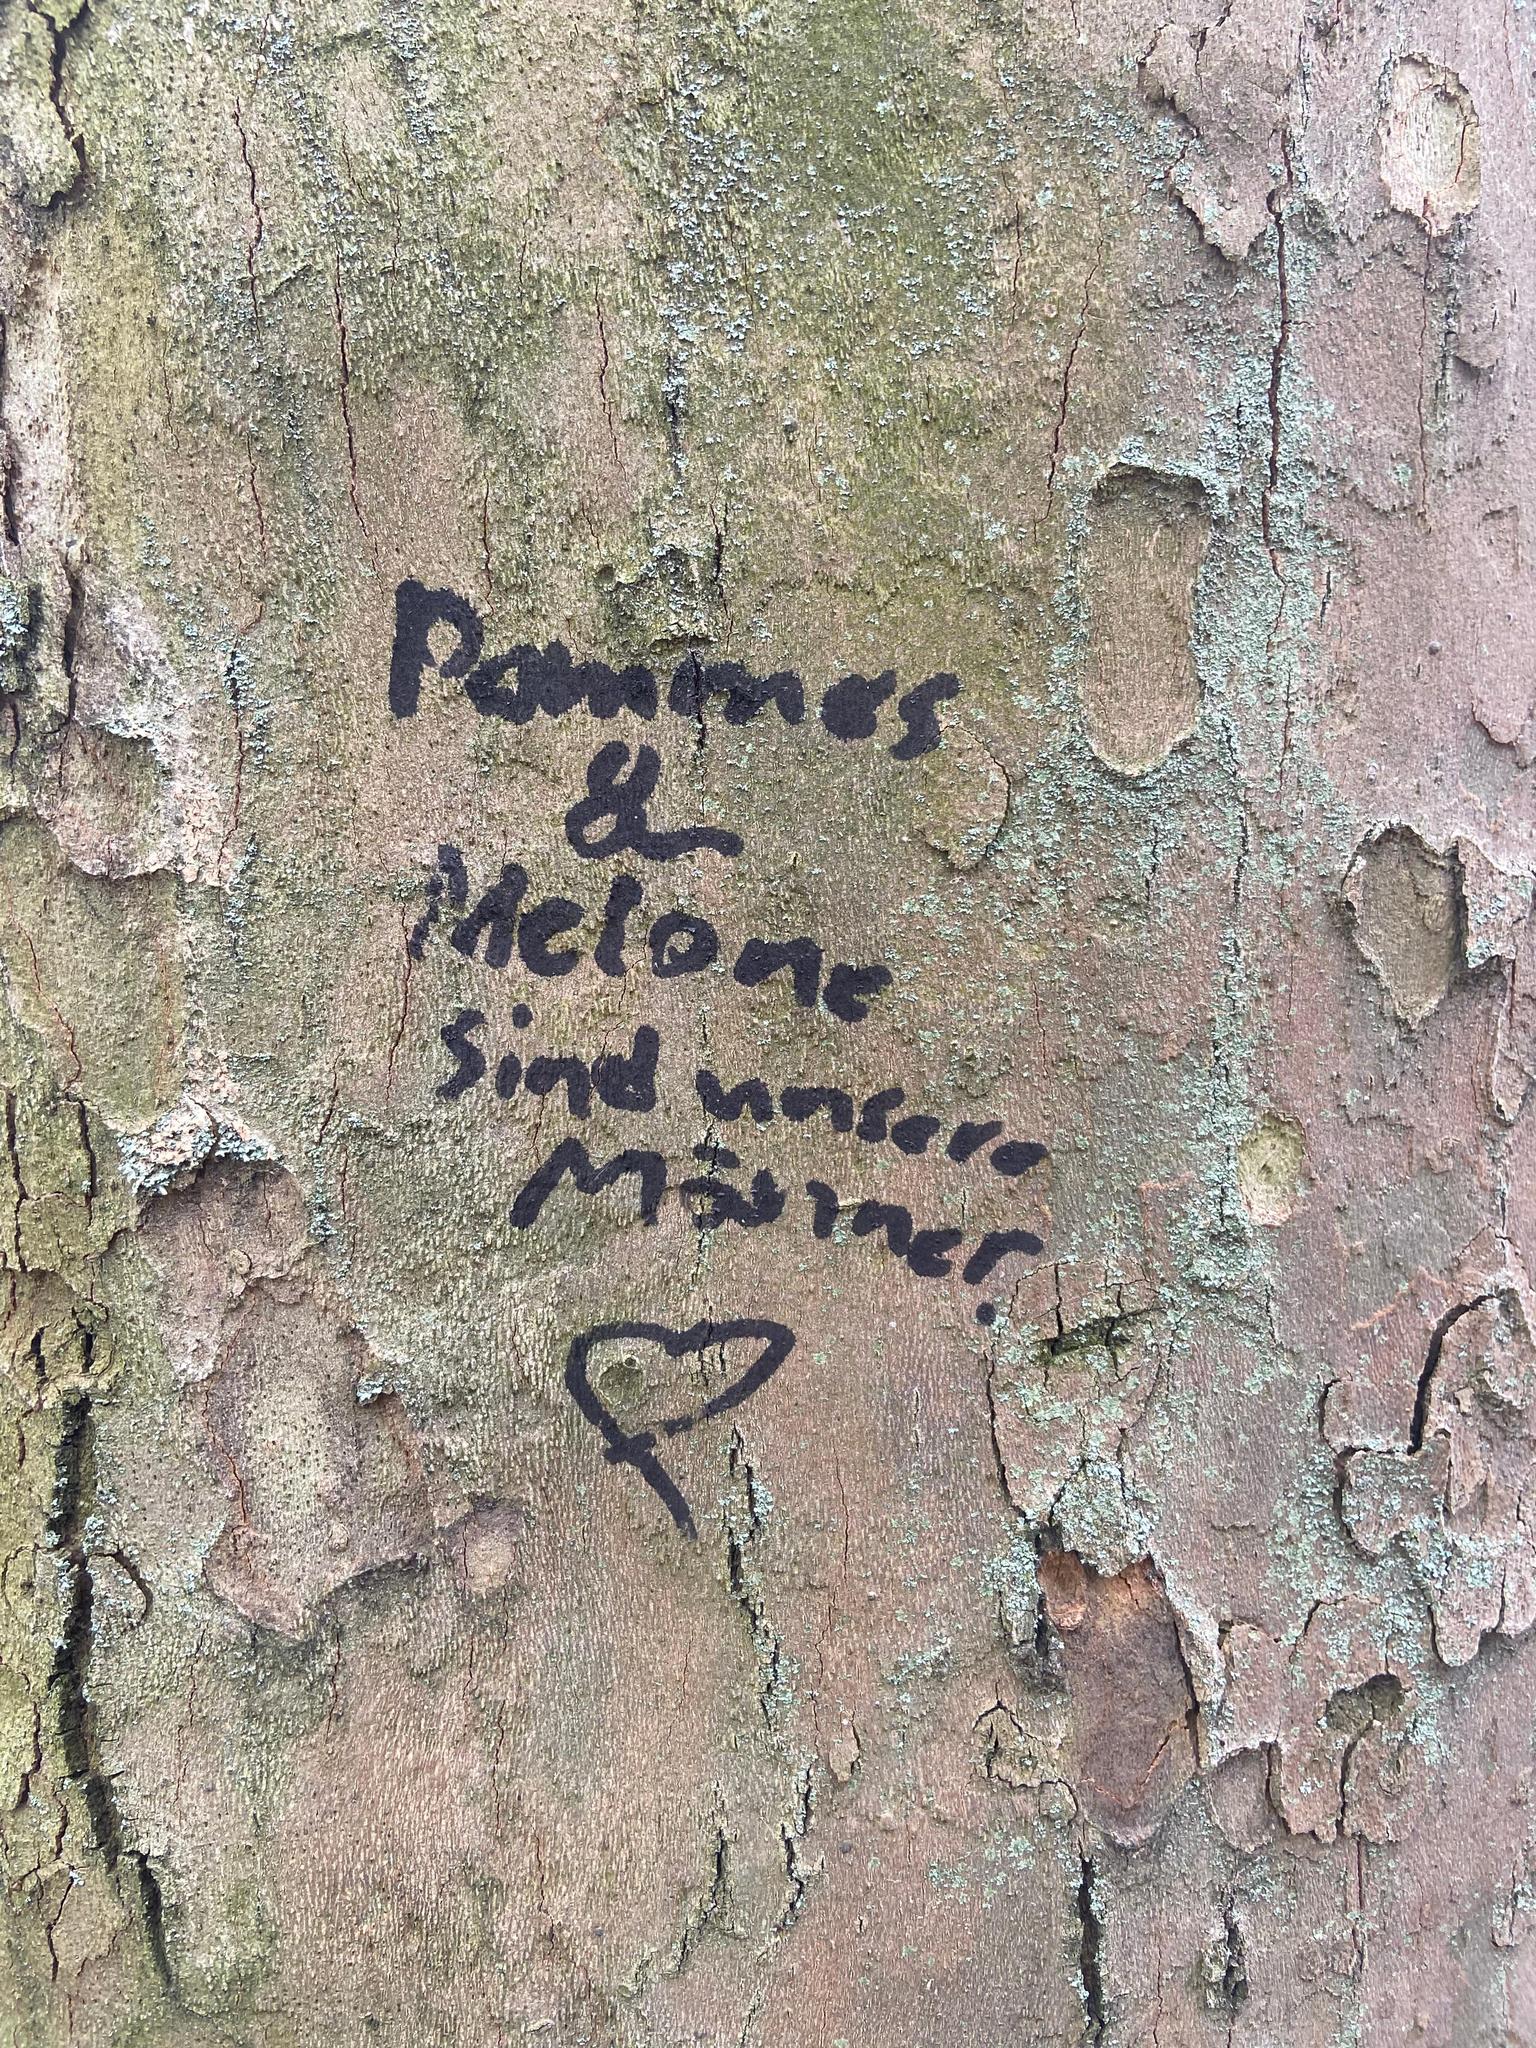 Pommes
&
Melone
sind unsere
Männer